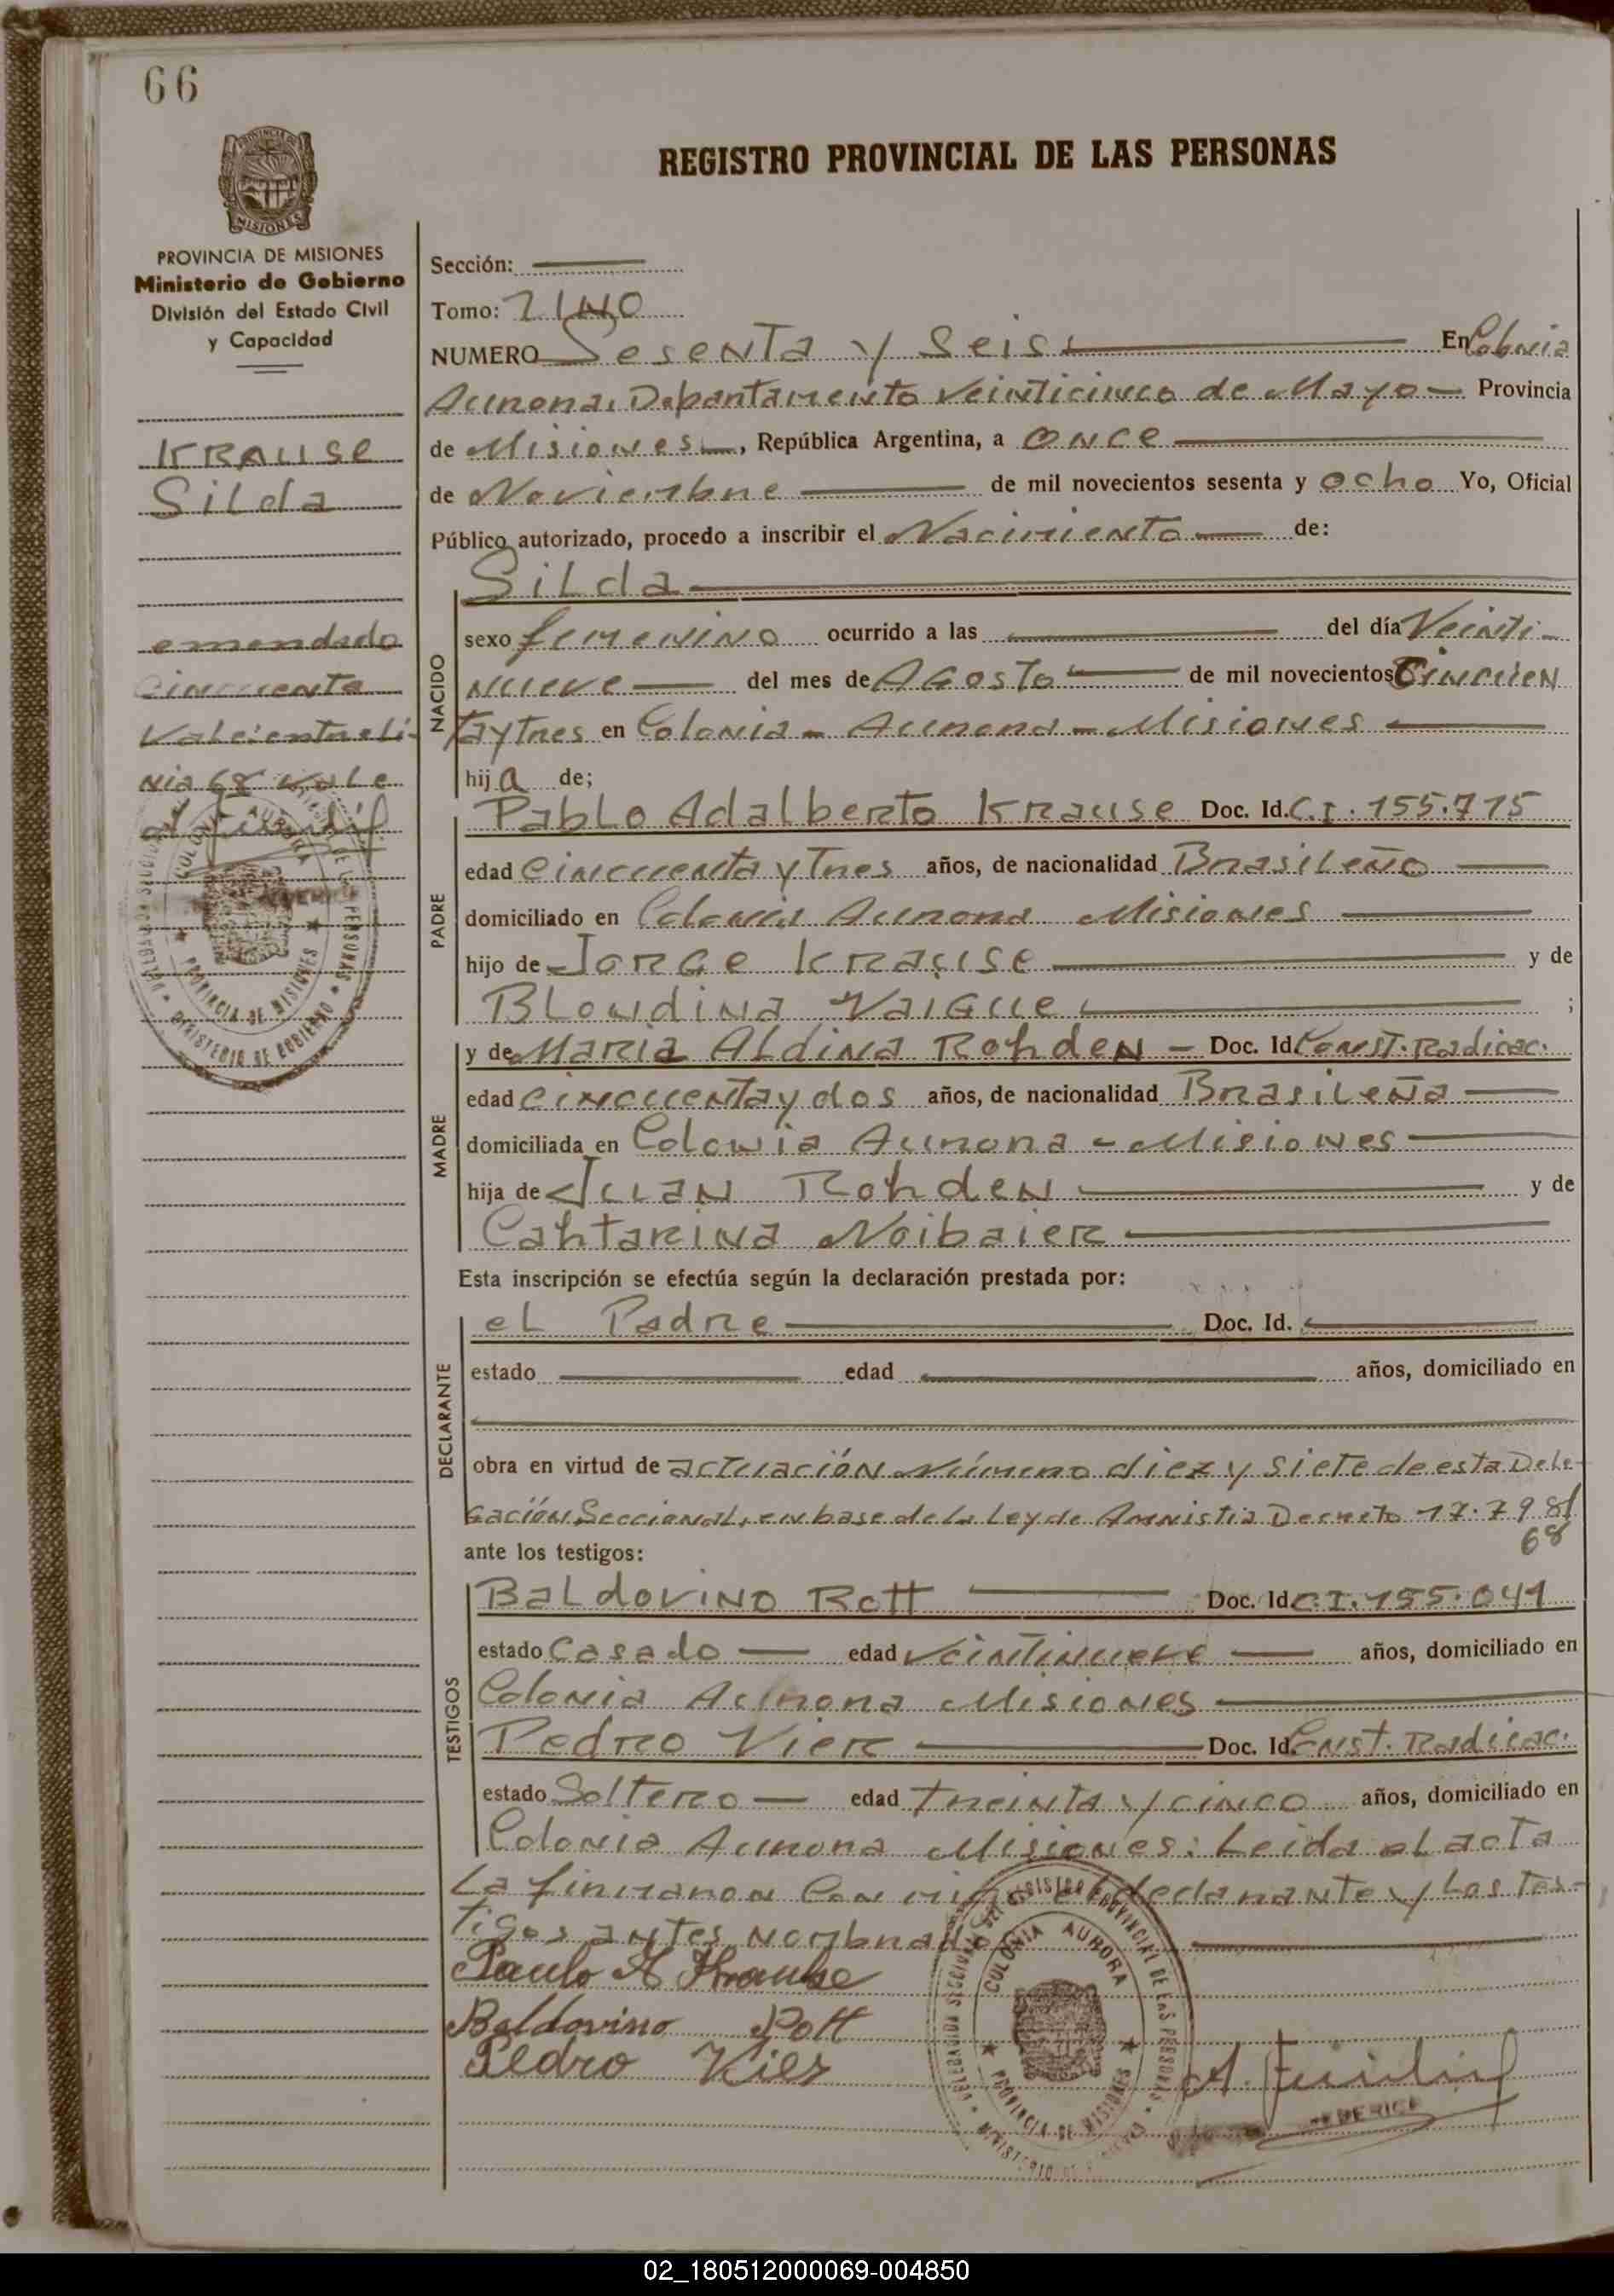 66
REGISTRO PROVINCIAL DE LAS PERSONAS
PROVINCIA DE MISIONES
Ministerio de Gobierno
División del Estado Civil
y Capacidad
KRAUSE
Silda
emendado
Cincuenta
Vale: entreli-
nia 68 vale
Sección:
Tomo: 1 UNO
NUMERO Sesenta y Seis En Colonia
Aurora, Departamento Veinticinco de Mayo – Provincia
de Misiones, República Argentina, a once
de Noviembre de mil novecientos sesenta y ocho Yo, Oficial
Público autorizado, procedo a inscribir el Nacimiento de:
Silda
NACIDO
sexo femenino ocurrido a las del día Veinti-
nueve del mes de Agosto de mil novecientos Cincuen
ta y tres en Colonia – Aurora – Misiones
hija de;
PADRE
Pablo Adalberto Krause Doc. Id. C.I. 155.715
edad Cincuenta y Tres años, de nacionalidad Brasileño
domiciliado en Colonia Aurora Misiones
hijo de Jorge Krause y de
Blondina Vaigue ;
MADRE
y de Maria Aldina Rohden – Doc. Id Const. Radicac.
edad Cincuenta y dos años, de nacionalidad Brasileña
domiciliada en Colonia Aurora – Misiones
hija de Juan Rohden y de
Cahtarina Noibaier
Esta inscripción se efectúa según la declaración prestada por:
DECLARANTE
el Padre Doc. Id.
estado edad años, domiciliado en
obra en virtud de actuación Número diez y siete de esta Dele-
gación Seccional, en base de la Ley de Amnistia Decreto 17.798/
68
ante los testigos:
TESTIGOS
Baldovino Rott Doc. Id C.I. 155.041
estado Casado edad veintinueve años, domiciliado en
Colonia Aurora Misiones
Pedro Vier Doc. Id. Const. Radicac.
estado Soltero edad Treinta y cinco años, domiciliado en
Colonia Aurora Misiones: Leida el acta
La firmaron Con migo el declarante y Los tes-
tigos antes nombrados
Paulo A Krause
Baldovino Rott
Pedro Vier
COLONIA AURORA
PROVINCIA DE MISIONES
MINISTERIO DE GOBIERNO
02_180512000069-004850